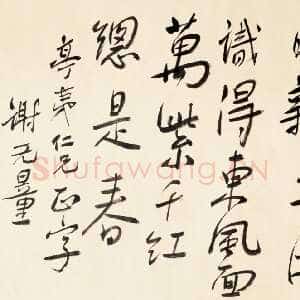 識得東風面
萬紫千红
總是春
亭夷仁兄正字
謝无量
Shufawang.CN